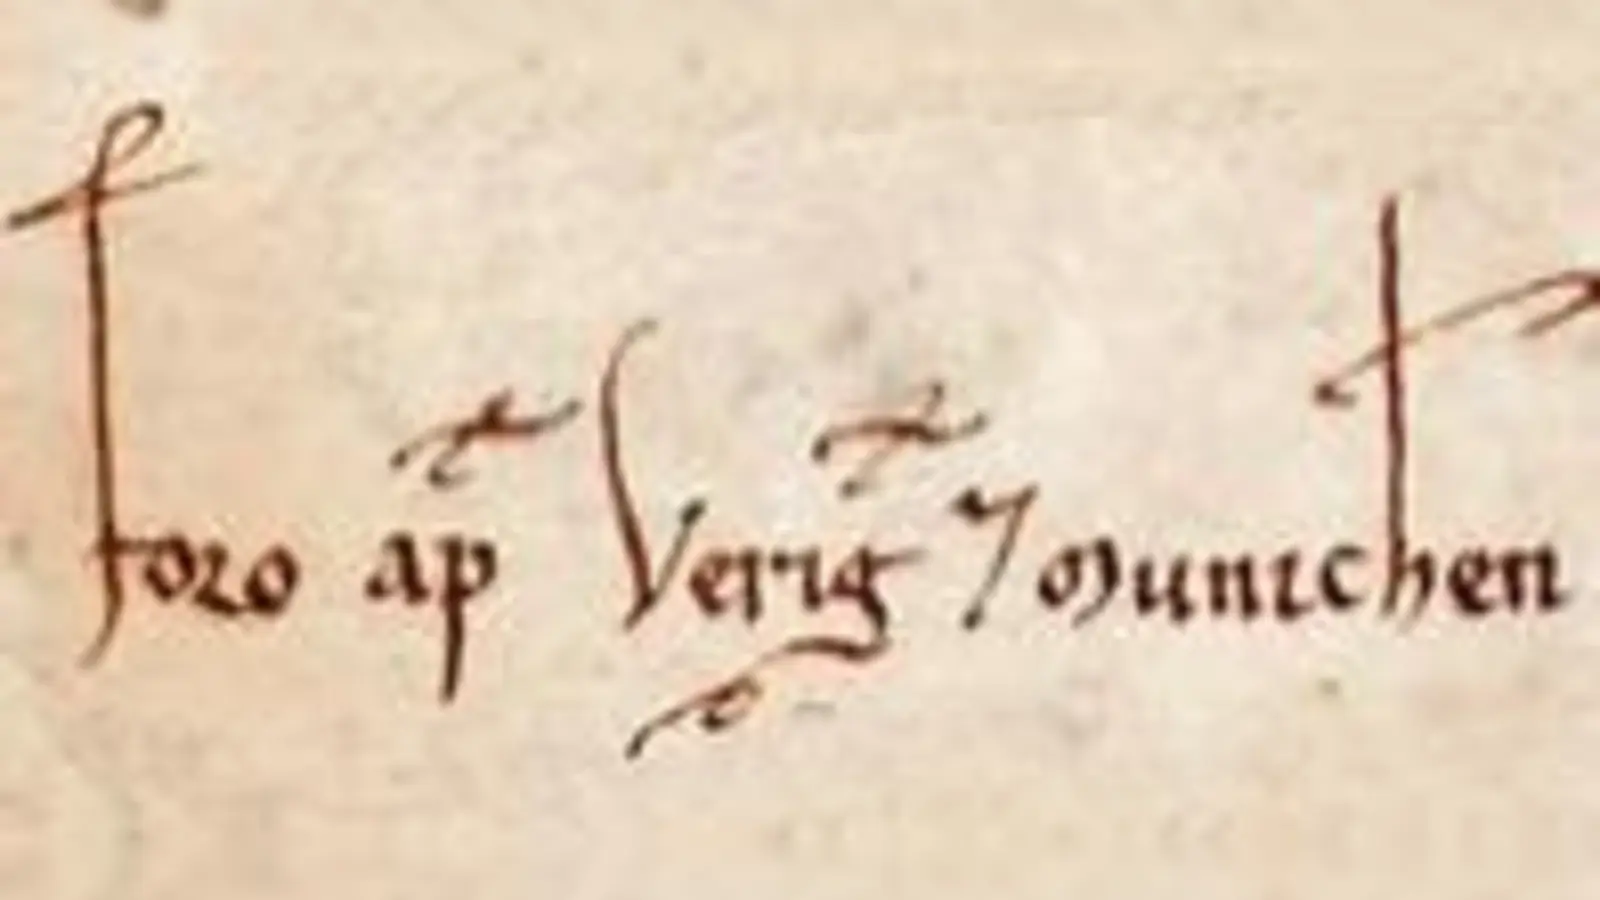 foro ap Verig ⁊ Munichen